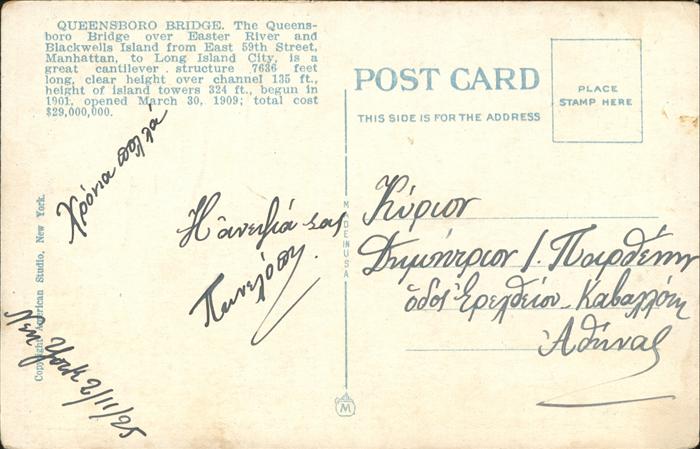 QUEENSBORO BRIDGE. The Queens-
boro Bridge over Easter River and
Blackwells Island from East 59th Street,
Manhattan, to Long Island City, is a
great cantilever structure 7636 feet
long, clear height over channel 135 ft.,
height of island towers 324 ft., begun in
1901, opened March 30, 1909; total cost
$29,000,000.
Χρόνια πολλά
Ἡ ἀνεψιά σας
Πηνελόπη.
Νέα Ὑόρκ
Copyright American Studio, New York.
MADE IN USA
M
POST CARD
THIS SIDE IS FOR THE ADDRESS
PLACE
STAMP HERE
Κύριον
Δημήτριον Ι. Παρθένην
ὁδὸς Ἐρεχθείου
Ἀθήνας